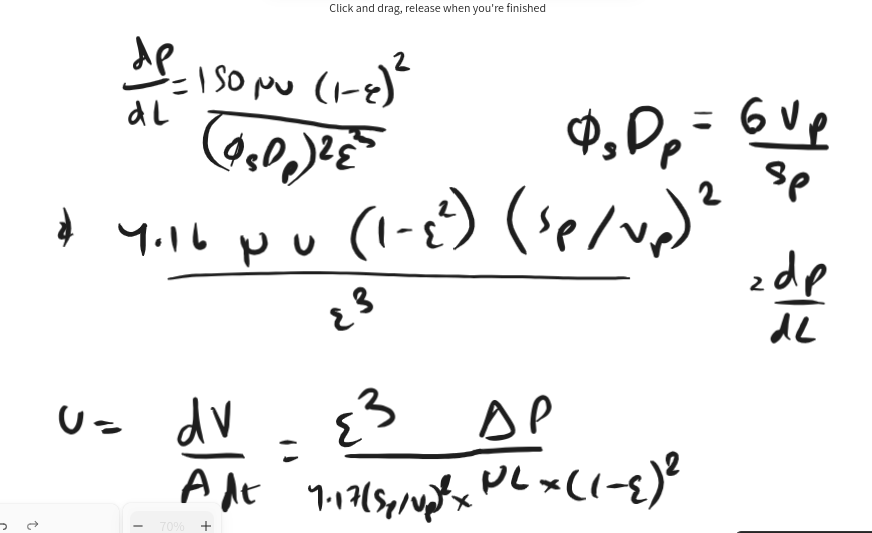 Click and drag, release when you're finished
dp/dL = 150 μu (1-ε)² / (ϕₛDₚ)²ε³
ϕₛDₚ = 6 vₚ / sₚ
4.16 μ u (1-ε²) (sₚ/vₚ)² / ε³ = dp/dL
u = dV / A dt = ε³ ΔP / 4.17(sₚ/vₚ)² × μL × (1-ε)²
70%